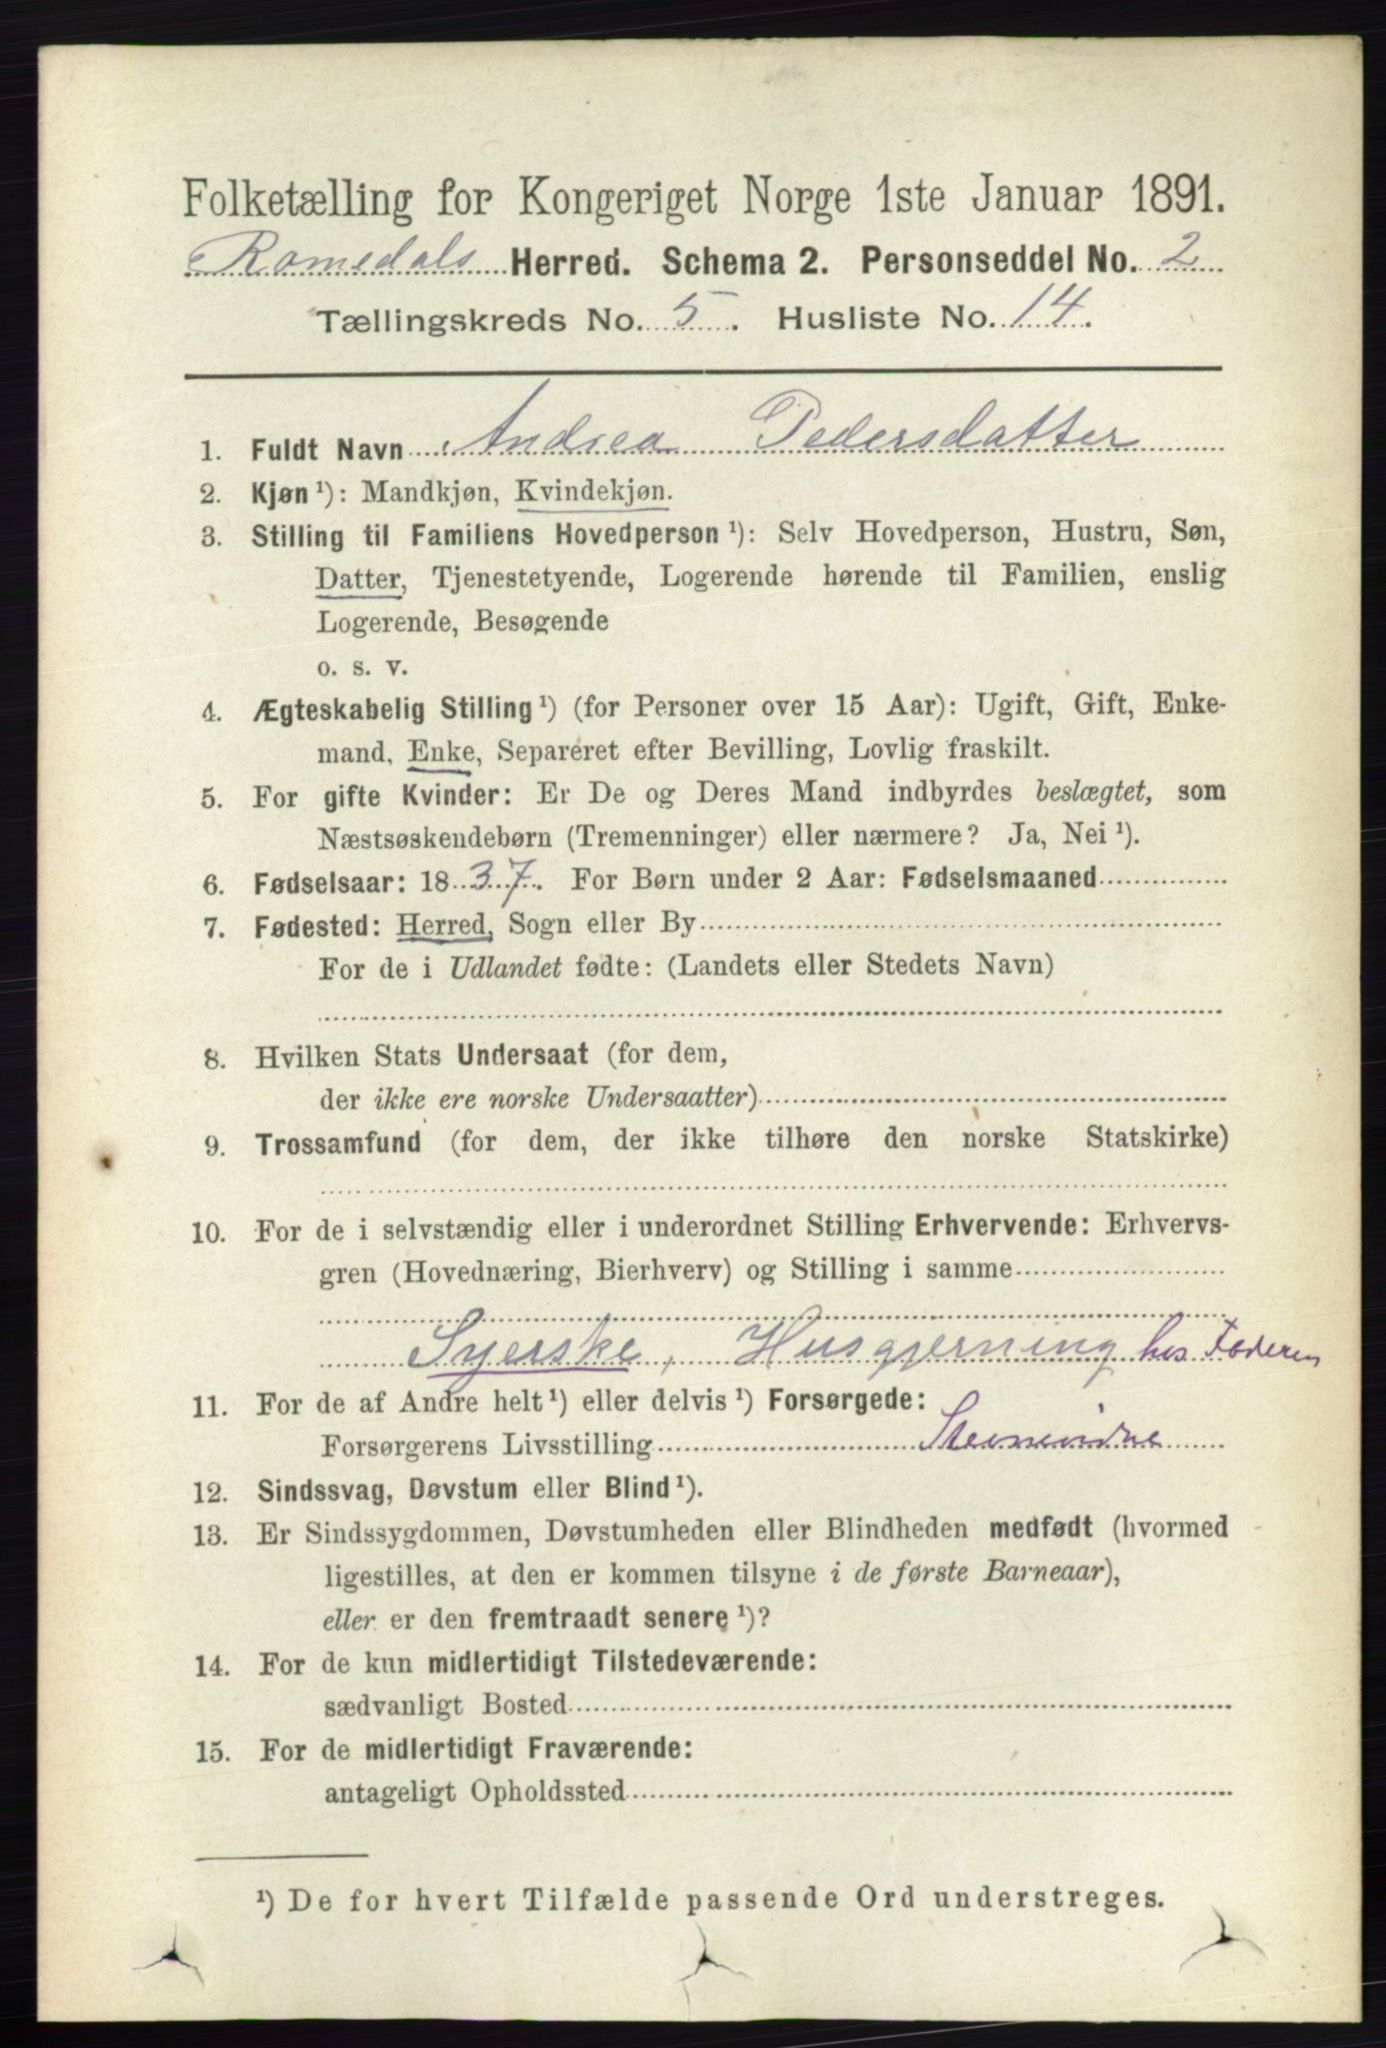 Folketælling for Kongeriget Norge 1ste Januar 1891.
Romedals Herred. Schema 2. Personseddel No. 2
Tællingskreds No. 5. Husliste No. 14.
1. Fuldt Navn Andrea Pedersdatter
2. Kjøn ¹): Mandkjøn, Kvindekjøn.
3. Stilling til Familiens Hovedperson ¹): Selv Hovedperson, Hustru, Søn,
Datter, Tjenestetyende, Logerende hørende til Familien, enslig
Logerende, Besøgende
o. s. v.
4. Ægteskabelig Stilling ¹) (for Personer over 15 Aar): Ugift, Gift, Enke-
mand, Enke, Separeret efter Bevilling, Lovlig fraskilt.
5. For gifte Kvinder: Er De og Deres Mand indbyrdes beslægtet, som
Næstsøskendebørn (Tremenninger) eller nærmere? Ja, Nei ¹).
6. Fødselsaar: 1837. For Børn under 2 Aar: Fødselsmaaned
7. Fødested: Herred, Sogn eller By
For de i Udlandet fødte: (Landets eller Stedets Navn)
8. Hvilken Stats Undersaat (for dem,
der ikke ere norske Undersaatter)
9. Trossamfund (for dem, der ikke tilhøre den norske Statskirke)
10. For de i selvstændig eller i underordnet Stilling Erhvervende: Erhvervs-
gren (Hovednæring, Bierhverv) og Stilling i samme
Syerske, Husgjerning hos Faderen
11. For de af Andre helt ¹) eller delvis ¹) Forsørgede:
Forsørgerens Livsstilling
12. Sindssvag, Døvstum eller Blind ¹).
13. Er Sindssygdommen, Døvstumheden eller Blindheden medfødt (hvormed
ligestilles, at den er kommen tilsyne i de første Barneaar),
eller er den fremtraadt senere ¹)?
14. For de kun midlertidigt Tilstedeværende:
sædvanligt Bosted
15. For de midlertidigt Fraværende:
antageligt Opholdssted
¹) De for hvert Tilfælde passende Ord understreges.